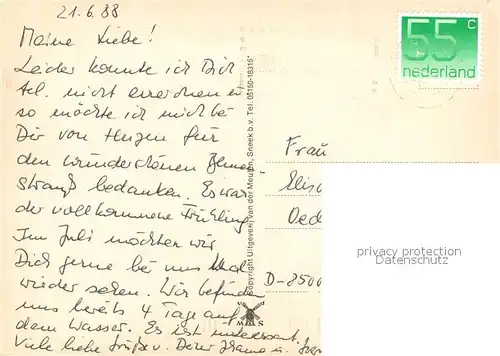 21.6.88
Meine Liebe!
Leider konnte ich Dich
tel. nicht erreichen et
so möchte ich mich be
Dir von Herzen für
den wunderschönen Blumen
strauß bedanken. Es war
der vollkommene Frühling
Im Juli möchten wir
Dich gerne bei uns
wieder sehen. Wir befinden
uns bereits 4 Tage auf
dem Wasser. Es ist interessant.
Viele liebe Grüße v. Deiner
55 c
nederland
Copyright Uitgeverij van der Meulen, Sneek b.v. Tel. 05150-18315*
V U
M S
Frau
Elis
Oed
D-8500
privacy protection
Datenschutz